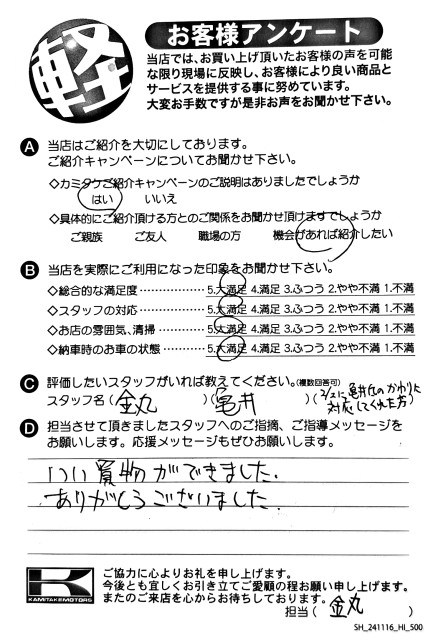 軽
お客様アンケート
当店では、お買い上げ頂いたお客様の声を可能
な限り現場に反映し、お客様により良い商品と
サービスを提供する事に努めています。
大変お手数ですが是非お声をお聞かせ下さい。
A 当店はご紹介を大切にしております。
ご紹介キャンペーンについてお聞かせ下さい。
◇カミタケご紹介キャンペーンのご説明はありましたでしょうか
はい いいえ
◇具体的にご紹介頂ける方とのご関係をお聞かせ頂けますでしょうか
ご親族 ご友人 職場の方 機会があれば紹介したい
B 当店を実際にご利用になった印象をお聞かせ下さい。
◇総合的な満足度………… 5.大満足 4.満足 3.ふつう 2.やや不満 1.不満
◇スタッフの対応………… 5.大満足 4.満足 3.ふつう 2.やや不満 1.不満
◇お店の雰囲気、清掃…… 5.大満足 4.満足 3.ふつう 2.やや不満 1.不満
◇納車時のお車の状態…… 5.大満足 4.満足 3.ふつう 2.やや不満 1.不満
C 評価したいスタッフがいれば教えてください。(複数回答可)
スタッフ名(金丸)(亀井)(2/2に亀井氏のかわりに
対応してくれた方)
D 担当させて頂きましたスタッフへのご指摘、ご指導メッセージを
お願いします。応援メッセージもぜひお願いします。
いい買物ができました.
ありがとうございました.
KAMITAKEMOTORS
ご協力に心よりお礼を申し上げます。
今後とも宜しくお引き立てご愛顧の程お願い申し上げます。
またのご来店を心からお待ちしております。
担当(金丸)
SH_241116_HI_500